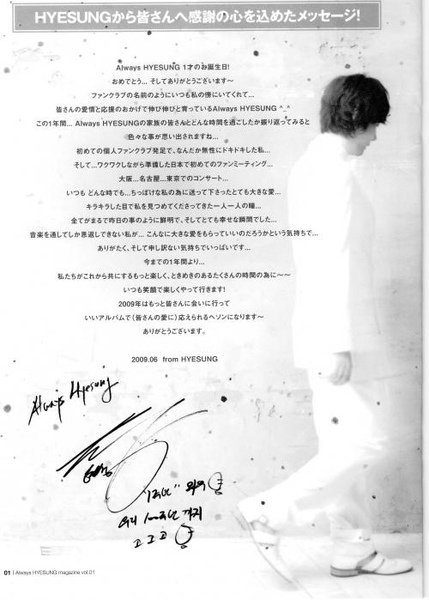 HYESUNGから皆さんへ感謝の心を込めたメッセージ!
Always HYESUNG 1才のお誕生日!
おめでとう... そしてありがとうございます〜
ファンクラブの名前のようにいつも私の傍にいてくれて...
皆さんの愛情と応援のおかげで伸び伸びと育っているAlways HYESUNG ^_^
この1年間... Always HYESUNGの家族の皆さんとどんな時間を過ごしたか振り返ってみると
色々な事が思い出されますね...
初めての個人ファンクラブ発足で、なんだか無性にドキドキした私...
そして...ワクワクしながら準備した日本で初めてのファンミーティング...
大阪...名古屋...東京でのコンサート...
いつも どんな時でも...ちっぽけな私の為に送って下さったとても大きな愛...
キラキラした目で私を見つめてくださってきた一人一人の瞳...
全てがまるで昨日の事のように鮮明で、そしてとても幸せな瞬間でした...
音楽を通してしか恩返しできない私が... こんなに大きな愛をもらっていいのだろうかという気持ちで...
ありがたく、そして申し訳ない気持ちでいっぱいです...
今までの1年間より...
私たちがこれから共にするもっと楽しく、ときめきのあるたくさんの時間の為に〜〜
いつも笑顔で楽しくやって行きます!
2009年はもっと皆さんに会いに行って
いいアルバムで(皆さんの愛に)応えられるヘソンになります〜
ありがとうございます。
2009.06 from HYESUNG
Always Hyesung
01 | Always HYESUNG magazine vol.01